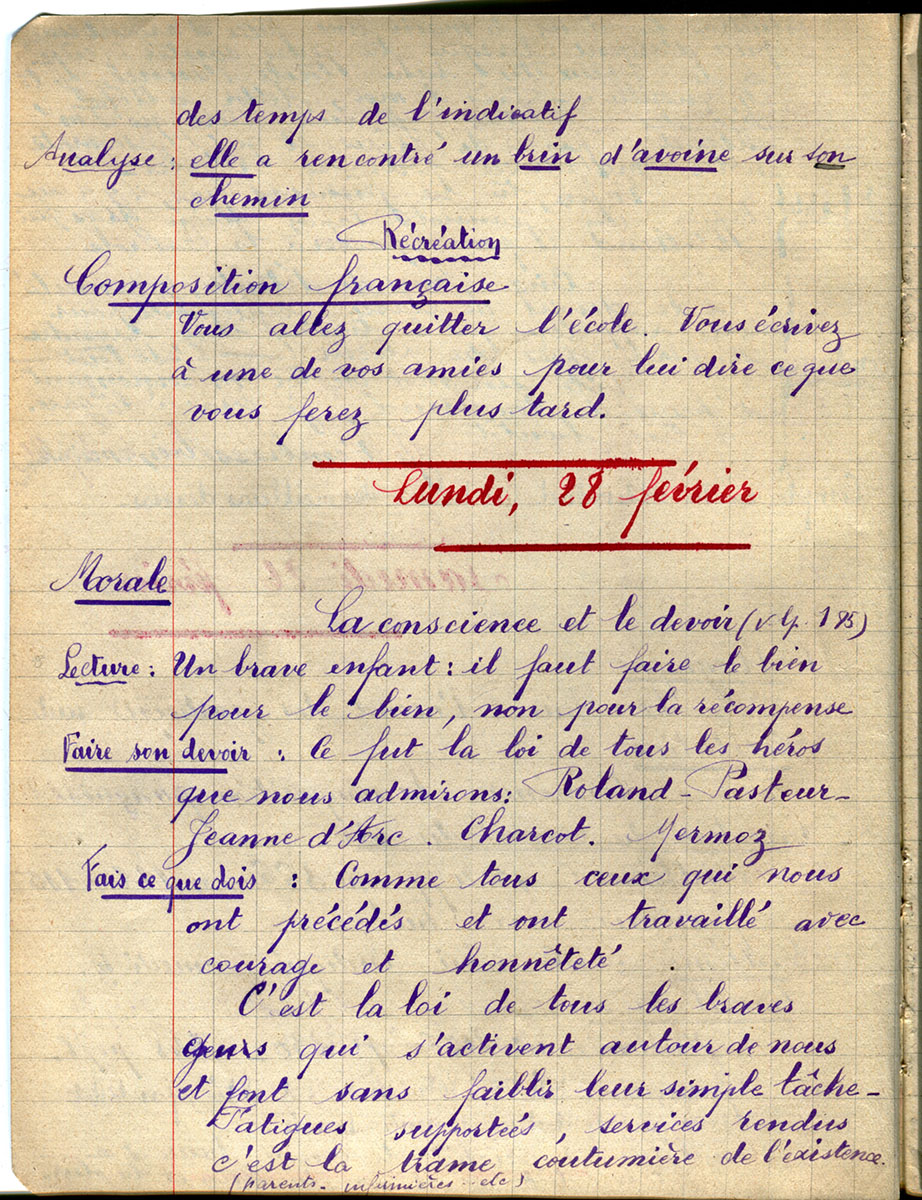 des temps de l'indicatif
Analyse : elle a rencontré un brin d'avoine sur son
chemin
Récréation
Composition française
Vous allez quitter l'école. Vous écrivez
à une de vos amies pour lui dire ce que
vous ferez plus tard.
Lundi, 28 février
Morale
La conscience et le devoir (v lp. 185)
Lecture : Un brave enfant : il faut faire le bien
pour le bien, non pour la récompense
Faire son devoir : Ce fut la loi de tous les héros
que nous admirons : Roland - Pasteur -
Jeanne d'Arc . Charcot . Mermoz
Fais ce que dois : Comme tous ceux qui nous
ont précédés et ont travaillé avec
courage et honnêteté .
C'est la loi de tous les braves
gens qui s'activent autour de nous
et font sans faiblir leur simple tâche -
Fatigues supportées, services rendus
c'est la trame coutumière de l'existence.
(parents - infirmières - etc)